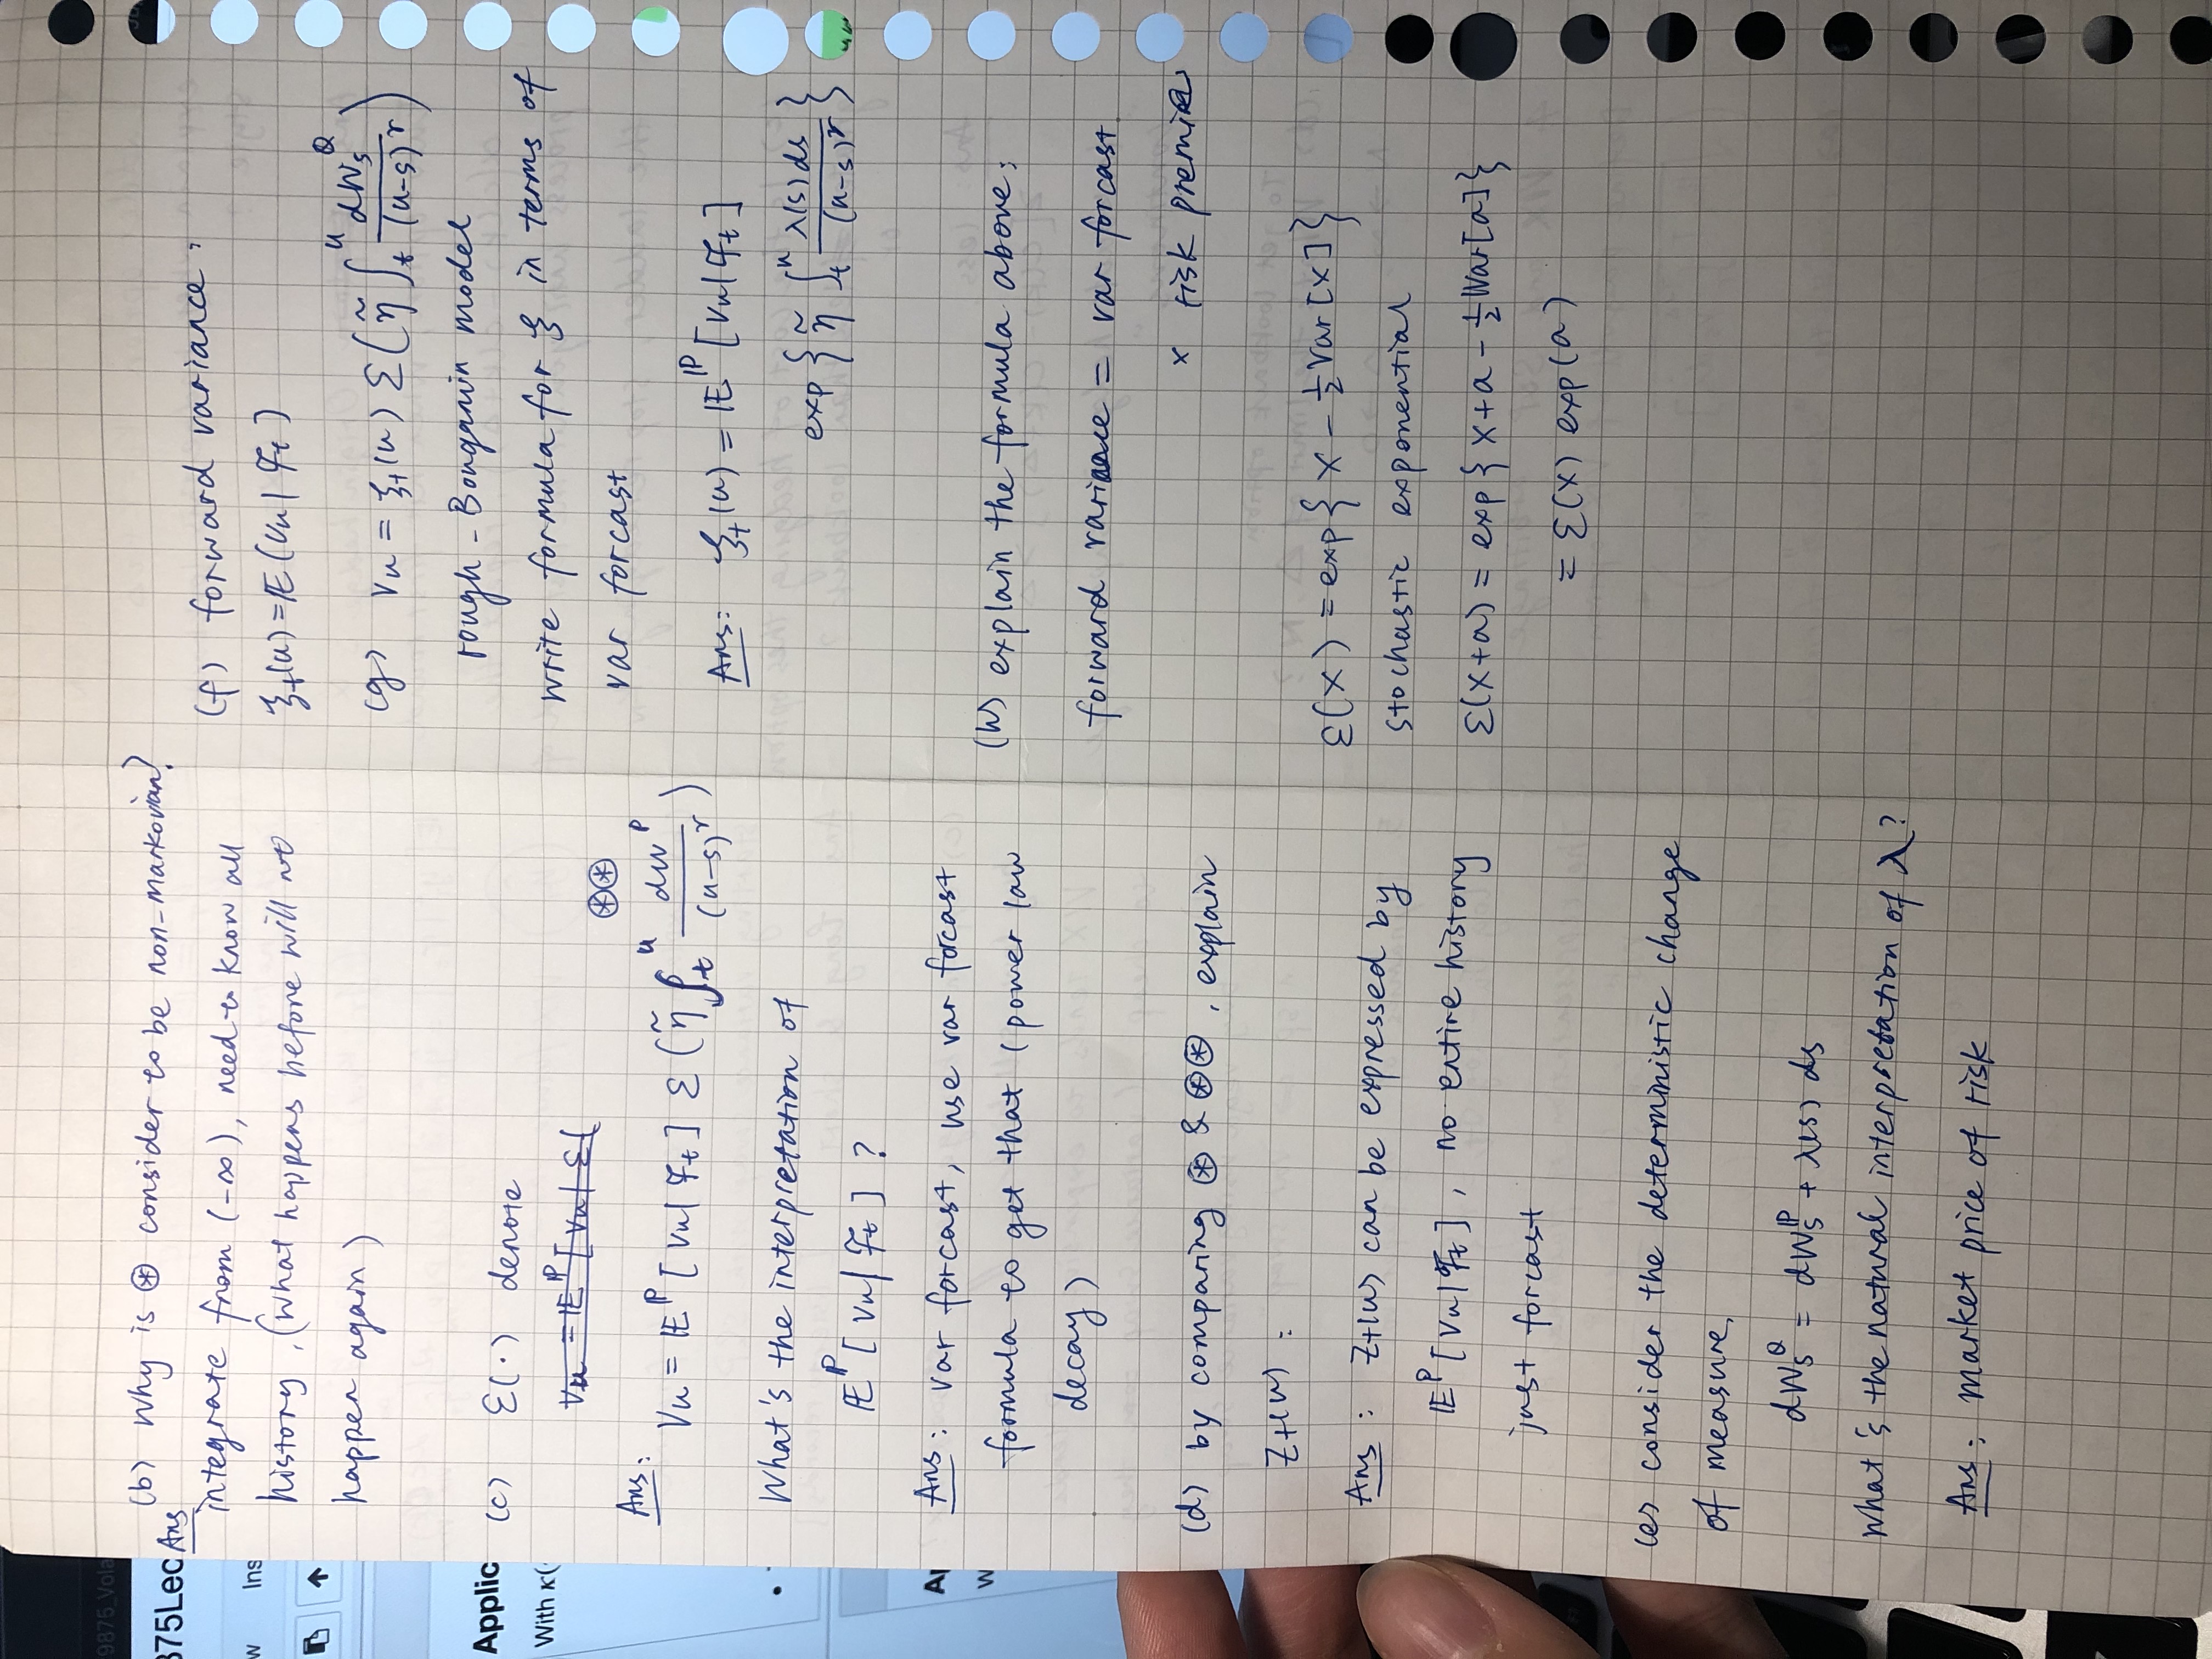 9875_Vola
875Lec
w Ins
Applic
With κ(
(b) Why is ⊛ consider to be non-markovian?
Ans
integrate from (-∞), need to know all
history, (what happens before will not
happen again)
(c) Ɛ(·) denote
Vu = 𝔼^ℙ [Vu| Ɛ(
⊛⊛
Ans: Vu = 𝔼^ℙ [Vu| ℱt] Ɛ(η̃ ∫_t^u dW^P / (u-s)^γ)
What's the interpretation of
𝔼^ℙ [Vu| ℱt] ?
Ans: var forcast, use var forcast
formula to get that (power law
decay)
(d) by comparing ⊛ & ⊛⊛, explain
Zt(u) :
Ans : Zt(u) can be expressed by
𝔼^P [Vu|ℱt], no entire history
just forcast
(e) consider the deterministic change
of measure,
dWs^Q = dWs^ℙ + λ(s) ds
What's the natural interpretation of λ?
Ans: market price of risk
(f) forward variance:
ξt(u) = 𝔼(Vu| ℱt]
(g) Vu = ξt(u) Ɛ(η̃ ∫_t^u dWs^Q / (u-s)^γ)
rough - Bougamin model
write formula for ξ in terms of
var forcast
Ans: ξt(u) = 𝔼^ℙ [Vu|ℱt]
exp { η̃ ∫_t^u λ(s) ds / (u-s)^γ }
(h) explain the formula above;
forward variance = var forcast
x risk premia
Ɛ(X) = exp{ X - ½ Var[X] }
stochastic exponential
Ɛ(X+a) = exp{ X+a - ½ Var[a] }
= Ɛ(X) exp(a)